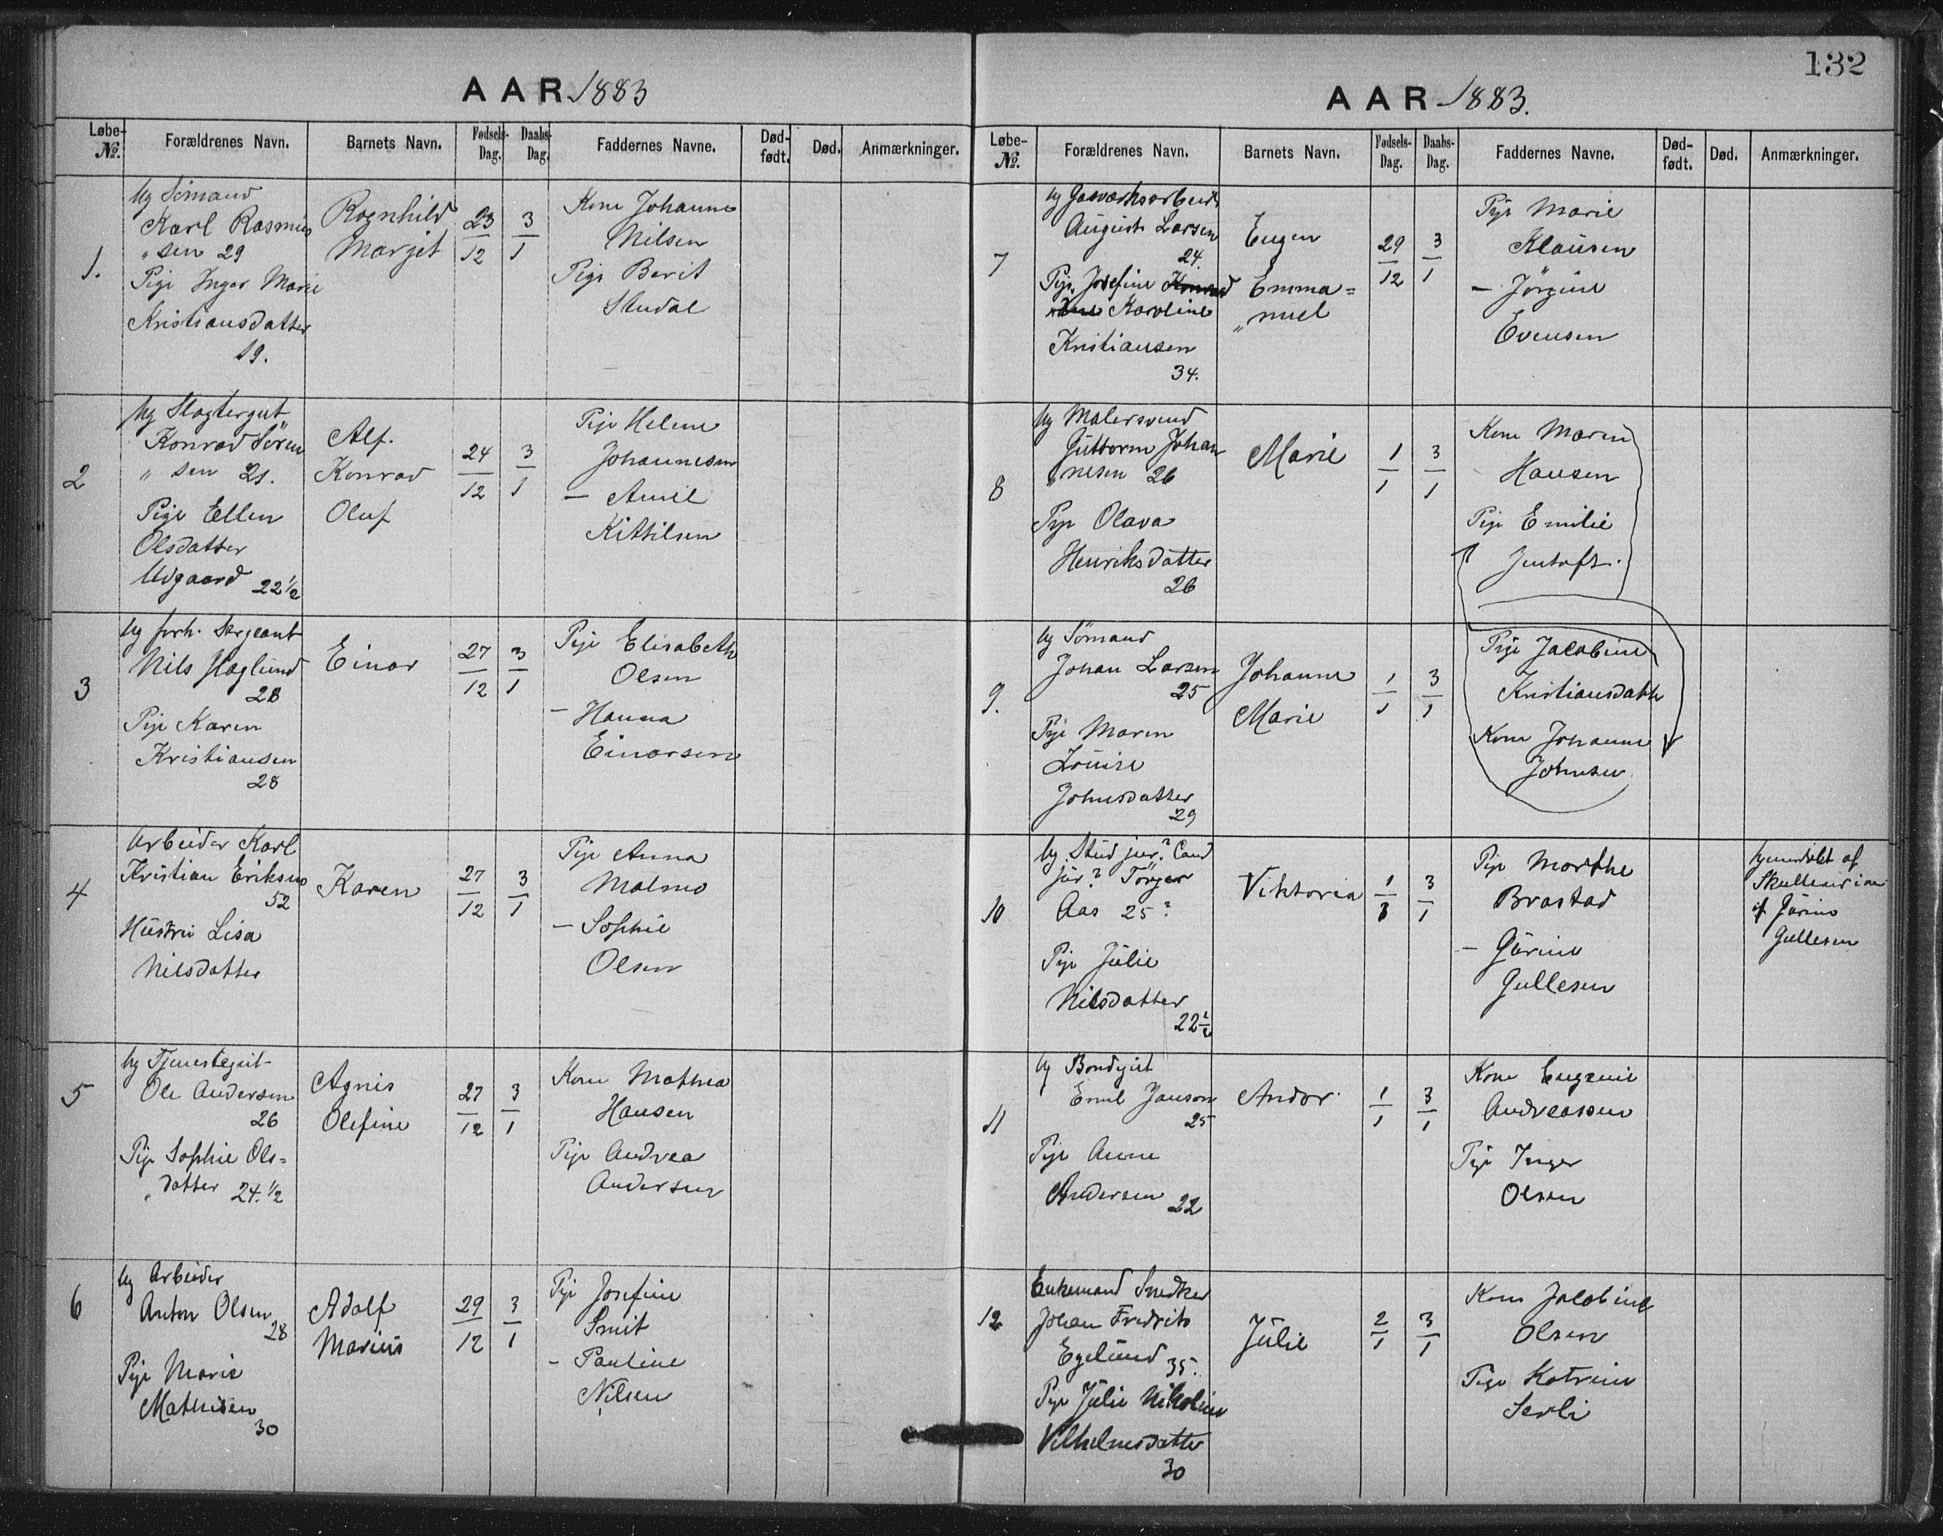 AAR 1883
Løbe-No.
Forældrenes Navn.
Barnets Navn.
Fødsels-Dag.
Daabs-Dag.
Faddernes Navne.
Død-født.
Død.
Anmærkninger.
1.
Ug Sømand
Karl Rasmus
"sen 29
Pige Inger Marie
Kristiansdatter
19.
Ragnhild
Margit
23/12
3/1
Kone Johanne
Nilsen
Pige Berit
Studal
2
Ug Slagtergut
Konrad Sören
"sen 21.
Pige Ellen
Olsdatter
Udgaard 22 1/2
Alf.
Konrad
Oluf
24/12
3/1
Pige Helene
Johannesen
— Amil
Kittilsen
3
Ug forh. Sergeant
Nils Haglund
28
Pige Karen
Kristiansen
28
Einar
27/12
3/1
Pige Elisabeth
Olsen
— Hanna
Einarsen
4
Arbeider Karl
Kristian Eriksen
52
Hustru Lisa
Nilsdatter
Karen
27/12
3/1
Pige Anna
Malmo
— Sophie
Olsen
5
Ug Tjenestegut
Ole Andersen
26
Pige Sophie Ols=
datter 24. 1/2
Agnes
Olefine
27/12
3/1
Kone Mathea
Hansen
Pige Andrea
Andersen
6
Ug Arbeider
Anton Olsen
28
Pige Marie
Mathisen
30
Adolf
Marius
29/12
3/1
Pige Josefine
Smit
— Pauline
Nilsen
132
AAR 1883.
Løbe-No.
Forældrenes Navn.
Barnets Navn.
Fødsels-Dag.
Daabs-Dag.
Faddernes Navne.
Død-født.
Død.
Anmærkninger.
7
Ug Gasværksarbeid.
August Larsen
24.
Pige Josefine
Karoline
Kristiansen
34.
Eugen
Emma=
"nuel
29/12
3/1
Pige Marie
Klausen
— Jörgine
Evensen
8
Ug Malersvend
Guttorm Johan
"nesen 26
Pige Olava
Henriksdatter
26
Marie
1/1
3/1
Kone Maren
Hansen
Pige Emilie
Jentoft.
9.
Ug Sömand
Johan Larsen
25
Pige Maren
Louise
Johnsdatter
29
Johanne
Marie
1/1
3/1
Pige Jacobine
Kristiansdatter
Kone Johanne
Johnsen
10
Ug. Stud jur.? Cand
jur? Törger
Aas 25?
Pige Julie
Nilsdatter
22 1/2
Viktoria
1/1
3/1
Pige Marthe
Brastad
— Gurine
Gullesen
hjemdøbt af
af Jörine
Gullesen
11
Ug Bondegut
Emil Janson
25
Pige Anne
Andersen 22
Andor.
1/1
3/1
Kone Eugenie
Andreassen
Pige Inger
Olsen
12
Enkemand Snedker
Johan Fredrik
Egelund 35.
Pige Julie Nikoline
Vilhelmsdatter
30
Julie
2/1
3/1
Kone Jacobine
Olsen
Pige Katrine
Serli